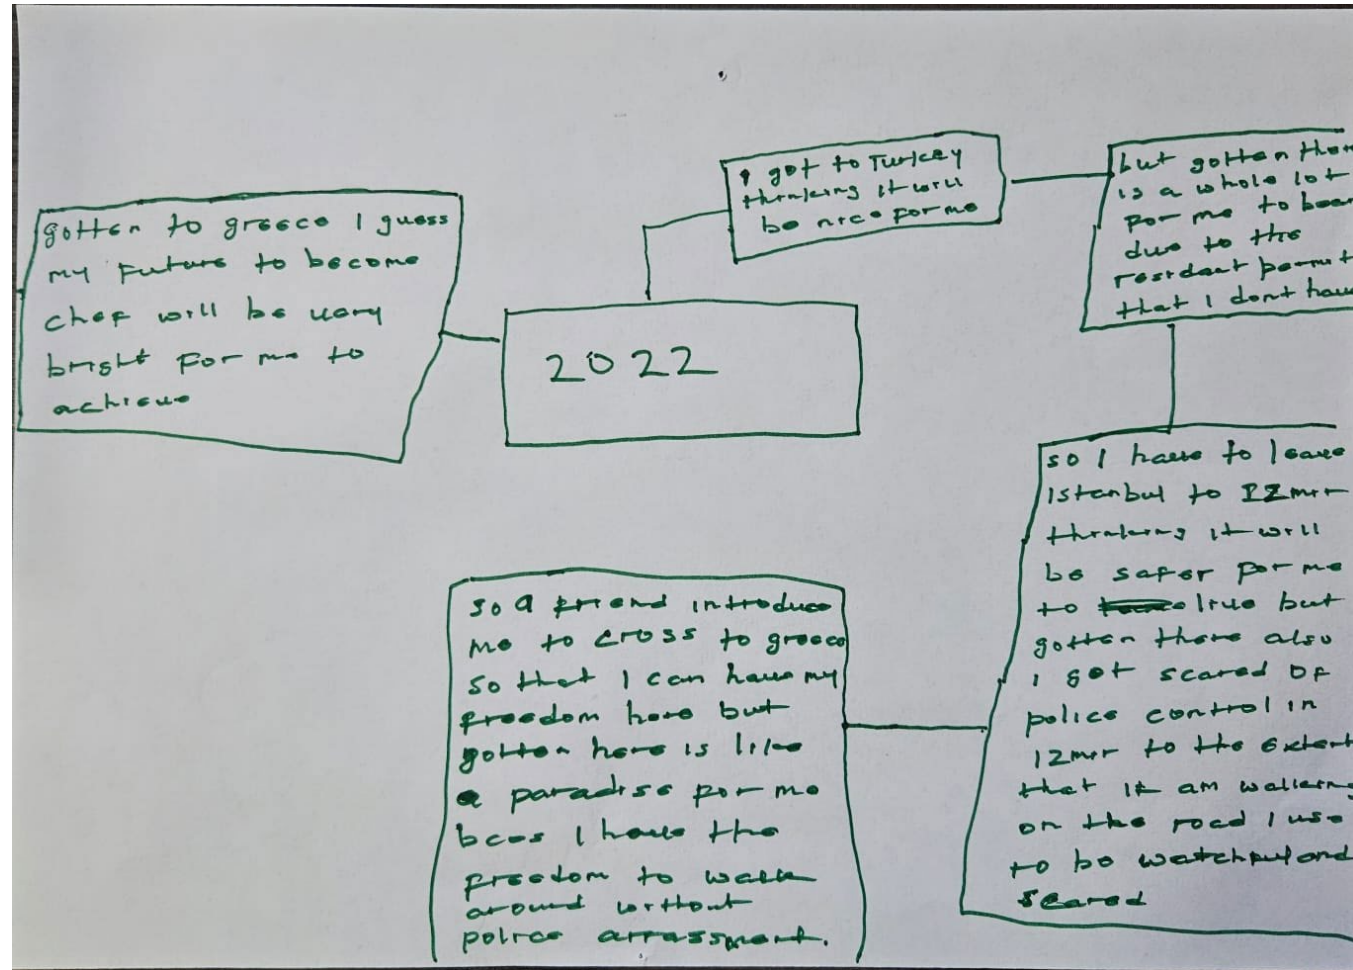 2022
I got to Turkey
thinking it will
be nice for me
but gotten there
is a whole lot
for me to bear
due to the
resident permit
that I dont have
so I have to leave
Istanbul to IZmir
thinking it will
be safer for me
to live but
gotten there also
I got scared OF
police control in
IZmir to the extent
that if am walking
on the road I use
to be watchful and
scared
so a friend introduce
me to cross to greece
so that I can have my
freedom here but
gotten here is like
a paradise for me
bcos I have the
freedom to walk
around without
police arrassment.
gotten to greece I guess
my future to become
chef will be very
bright for me to
achieve